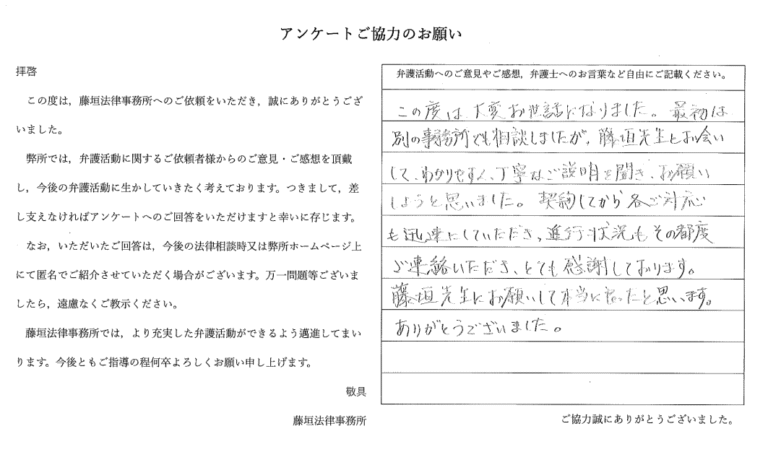 アンケートご協力のお願い
拝啓
この度は，藤垣法律事務所へのご依頼をいただき，誠にありがとうござ
いました。
弊所では，弁護活動に関するご依頼者様からのご意見・ご感想を頂戴
し，今後の弁護活動に生かしていきたく考えております。つきまして，差
し支えなければアンケートへのご回答をいただけますと幸いに存じます。
なお，いただいたご回答は，今後の法律相談時又は弊所ホームページ上
にて匿名でご紹介させていただく場合がございます。万一問題等ございま
したら，遠慮なくご教示ください。
藤垣法律事務所では，より充実した弁護活動ができるよう邁進してまい
ります。今後ともご指導の程何卒よろしくお願い申し上げます。
敬具
藤垣法律事務所
弁護活動へのご意見やご感想，弁護士へのお言葉など自由にご記載ください。
この度は大変お世話になりました。最初は
別の事務所でも相談しましたが、藤垣先生とお会い
して、わかりやすく、丁寧なご説明を聞き、お願い
しようと思いました。契約してから各ご対応
も迅速にしていただき、進行状況もその都度
ご連絡いただき、とても感謝しております。
藤垣先生にお願いして本当に良かったと思います。
ありがとうございました。
ご協力誠にありがとうございました。